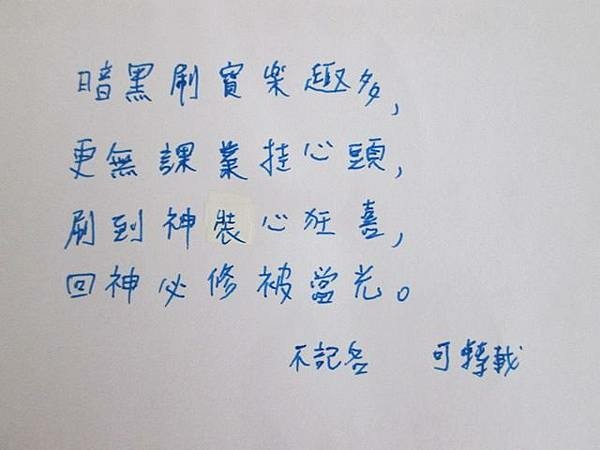 暗黑刷寶樂趣多,
更無課業挂心頭,
刷到神裝心狂喜,
回神必修被當光。
不記名 可轉載